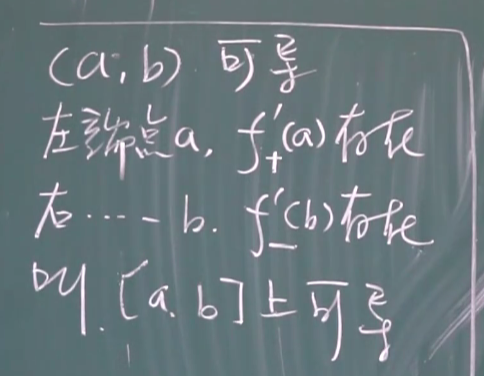 (a,b) 可导
左端点a, f'₊(a)存在
右……b. f'₋(b)存在
叫.[a.b]上可导